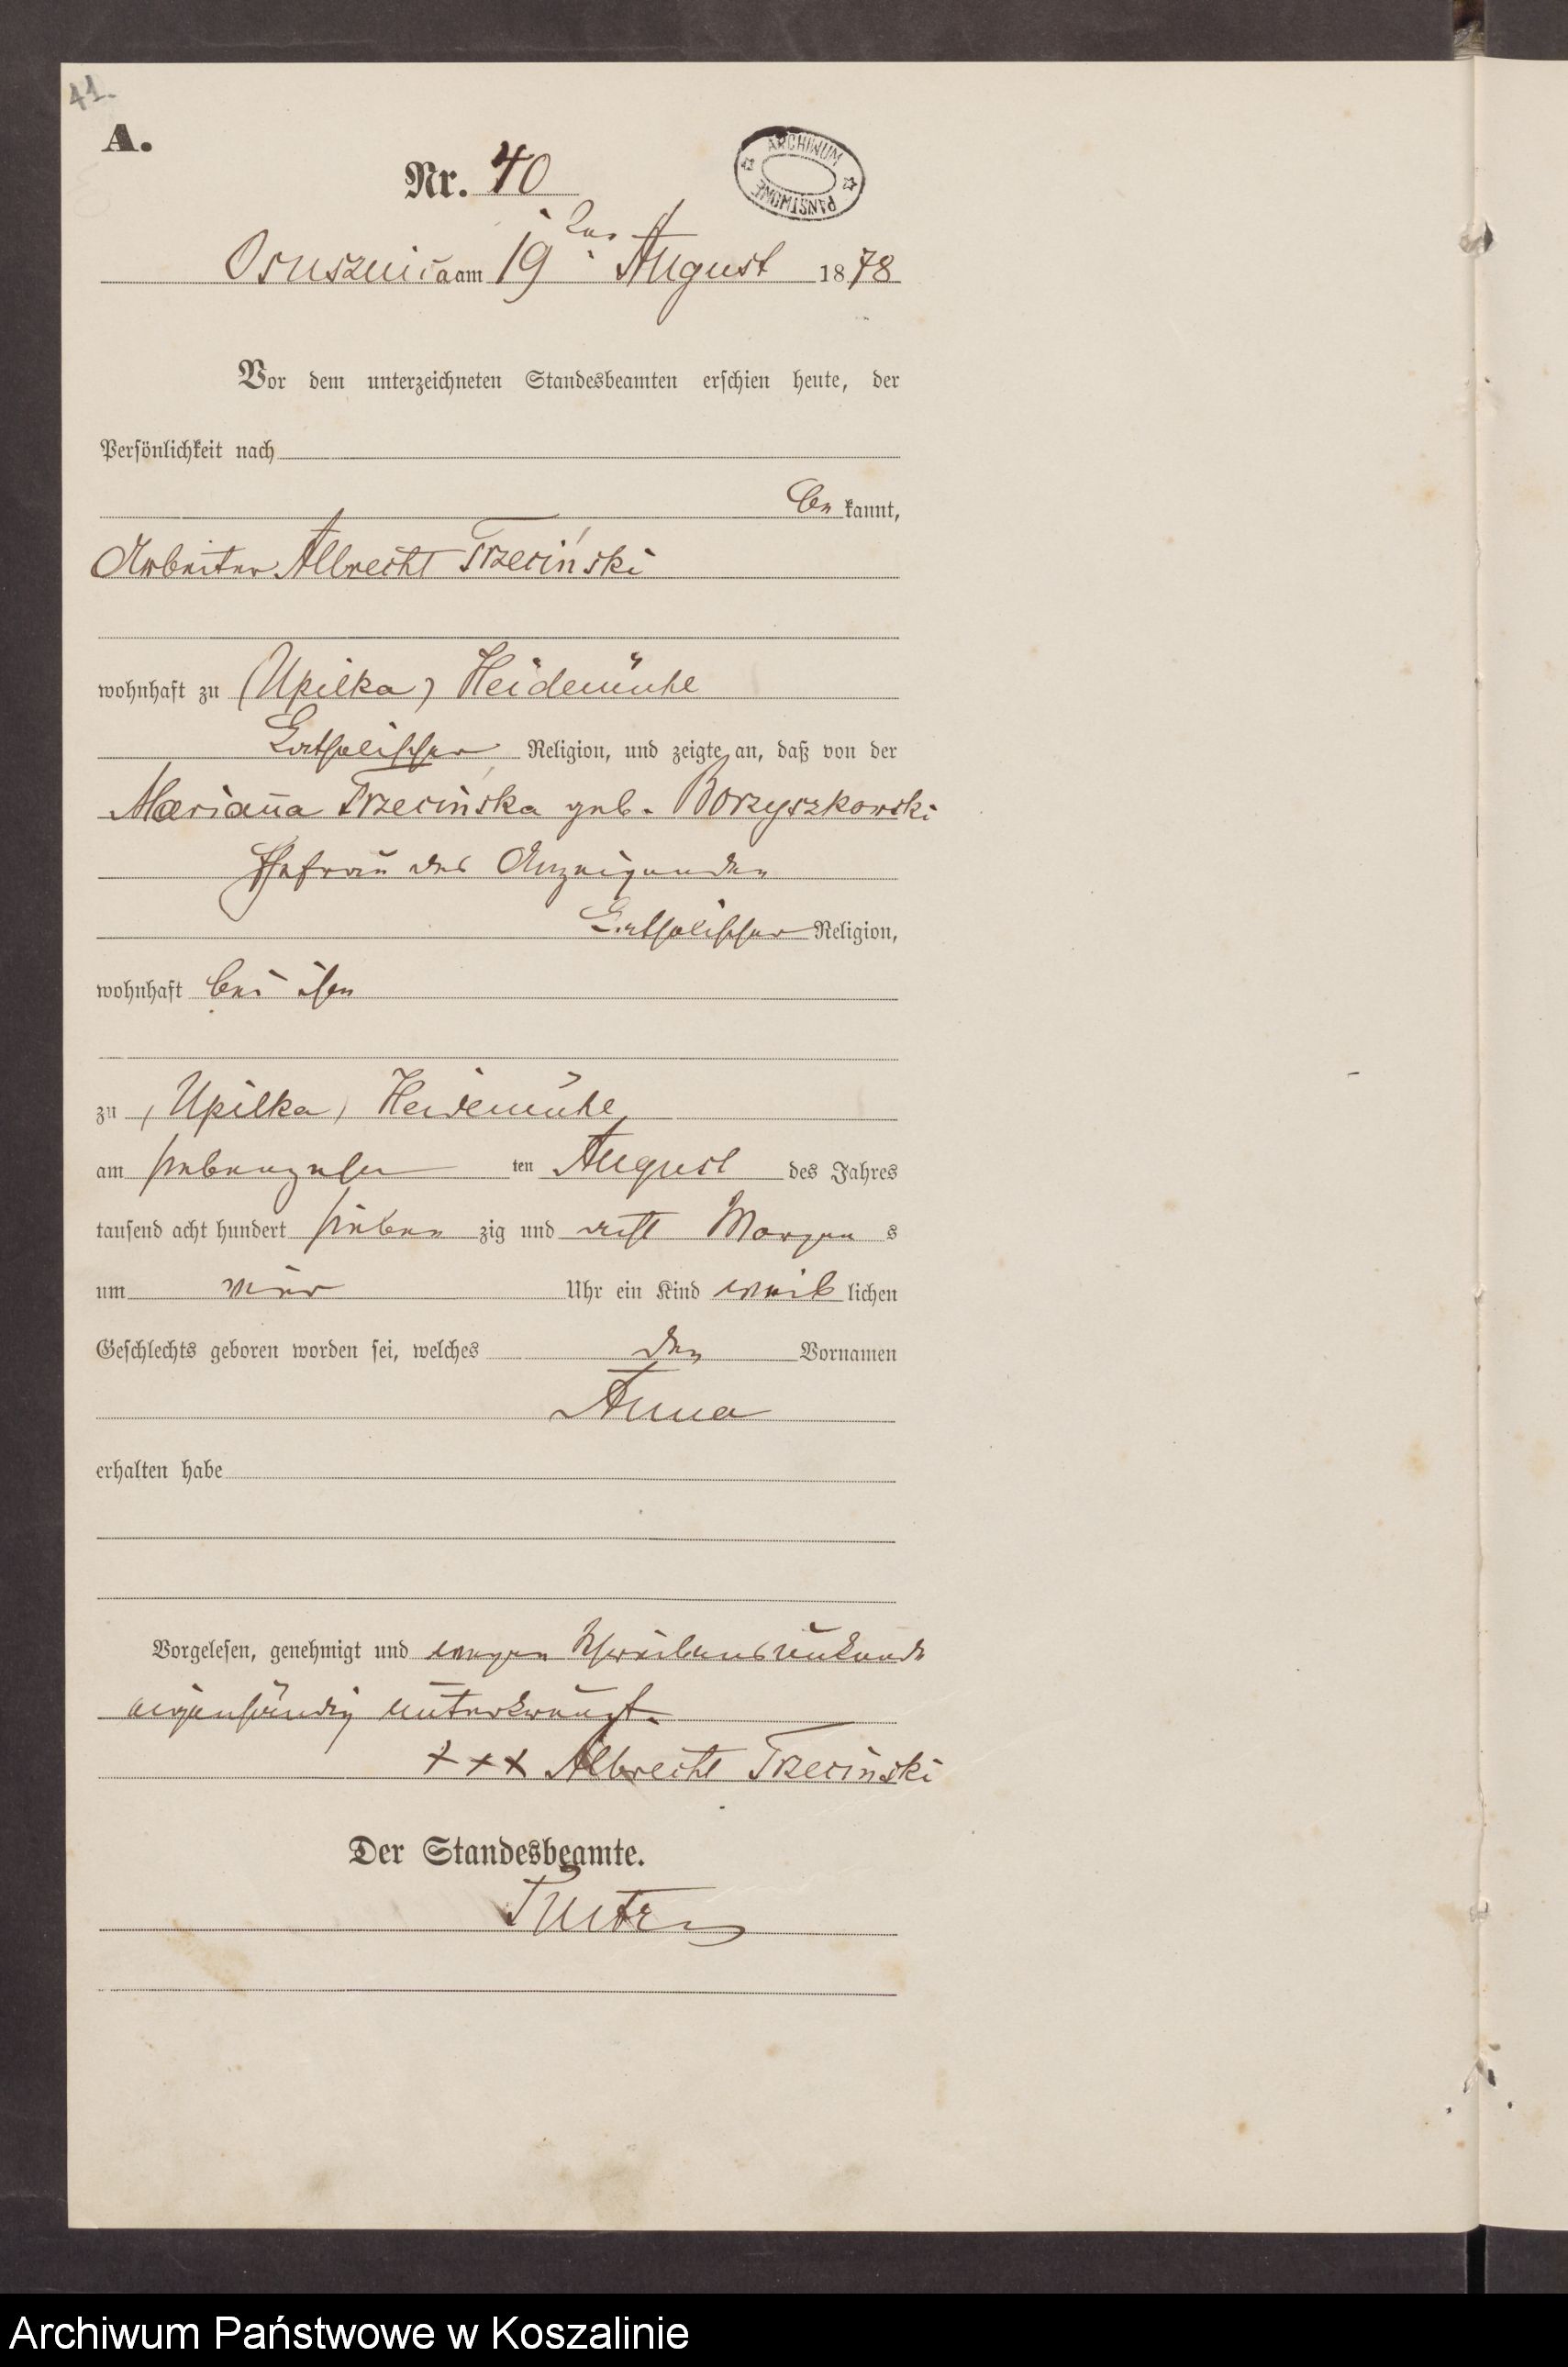 41.
A.
Nr. 40
ARCHIWUM
PAŃSTWOWE
Osusznica am 19ten August 1878
Vor dem unterzeichneten Standesbeamten erschien heute, der
Persönlichkeit nach
be kannt,
Arbeiter Albrecht Trzeciński
wohnhaft zu (Upilka) Heidemühle
katholischer Religion, und zeigte an, daß von der
Marianna Trzecińska geb. Borzyszkowski
Ehefrau des Anzeigenden
katholischer Religion,
wohnhaft bei ihm
zu (Upilka) Heidemühle
am siebenzehn ten August des Jahres
tausend acht hundert sieben zig und acht Morgen s
um vier Uhr ein Kind weib lichen
Geschlechts geboren worden sei, welches den Vornamen
Anna
erhalten habe
Vorgelesen, genehmigt und wegen Schreibensunkunde
eigenhändig unterkreuzt.
+++ Albrecht Trzeciński
Der Standesbeamte.
Archiwum Państwowe w Koszalinie